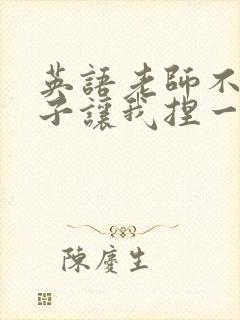 英語老師不
子讓我捏一
陳慶生